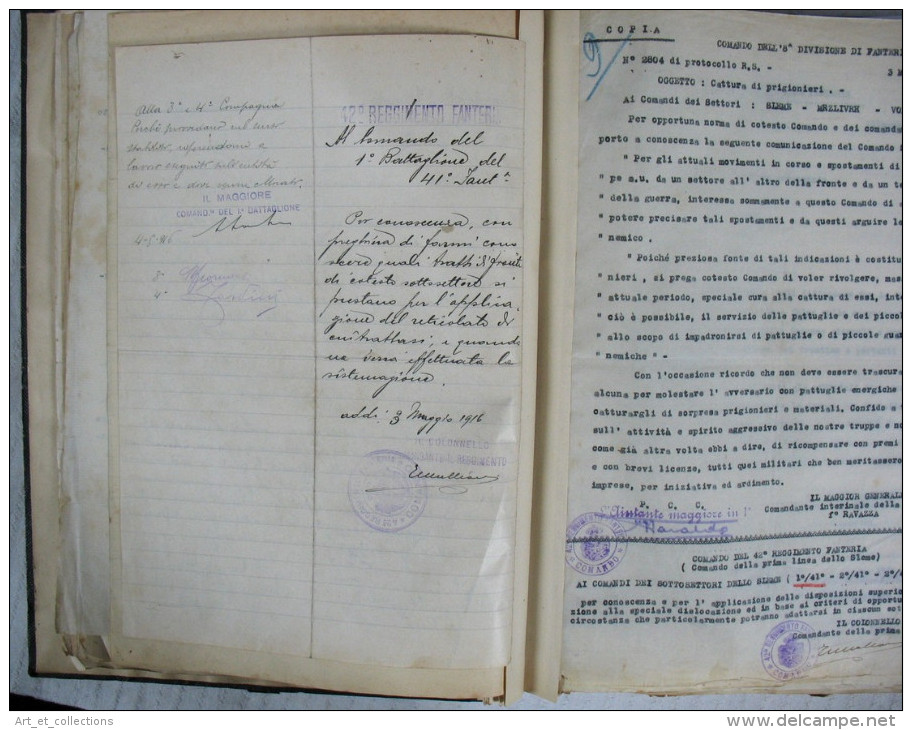 Alla 3ª e 4ª Compagnia
Perchè provvedano sul nuovo
lavoro eseguito sull'entità
di esso e dove venne ultimato.
IL MAGGIORE
COMAND.TE DEL 1º BATTAGLIONE
4-5-916
3ª
4ª
42º REGGIMENTO FANTERIA
Al Comando del
1º Battaglione del
41º Fant.ª
Per conoscenza, con
preghiera di farmi cono
scere quali tratti di fronte
di cotesto sottosettore si
prestano per l'applica
zione del reticolato di
contrattassi, e quando
ne verrà effettuata la
sistemazione.
addì 3 Maggio 1916
IL COLONNELLO
COMANDANTE IL REGGIMENTO
COPIA
COMANDO DELL'8ª DIVISIONE DI FANTERI
Nº 2804 di protocollo R.S. -
3 M
OGGETTO : Cattura di prigionieri . -
Ai Comandi dei Settori : SLEME - MRZLIVRH - VO
Per opportuna norma di cotesto Comando e dei comanda
porto a conoscenza la seguente comunicazione del Comando
" Per gli attuali movimenti in corso e spostamenti di
" pe a.u. da un settore all' altro della fronte e da un te
" della guerra, interessa sommamente a questo Comando di
" potere precisare tali spostamenti e da questi arguire le
" nemico .
" Poichè preziosa fonte di tali indicazioni è costitu
" nieri , si prega cotesto Comando di voler rivolgere, mas
" attuale periodo, speciale cura alla cattura di essi, inte
" ciò è possibile, il servizio delle pattuglie e dei piccol
" allo scopo di impadronirsi di pattuglie o di piccole guar
" nemiche " -
Con l'occasione ricordo che non deve essere trascura
alcuna per molestare l' avversario con pattuglie energiche
catturargli di sorpresa prigionieri e materiali. Confido
sull' attività e spirito aggressivo delle nostre truppe e no
come già altra volta ebbi a dire, di ricompensare con premi
e con brevi licenze, tutti quei militari che ben meritassero
imprese, per iniziativa ed ardimento.
P. C. C.
L'Aiutante maggiore in 1ª
IL MAGGIOR GENERALE
Comandante interinale della
fº RAVAZZA
COMANDO DEL 42º REGGIMENTO FANTERIA
( Comando della prima linea dello Sleme)
AI COMANDI DEI SOTTOSETTORI DELLO SLEME ( 1º/41º - 2º/41º - 2º/4
per conoscenza e per l' applicazione delle disposizioni superio
zione alla speciale dislocazione ed in base ai criteri di opportu
circostanza che particolarmente potranno adattarsi in ciascun sot
IL COLONNELLO
Comandante della prima
Art_et_collections
delcampe.net